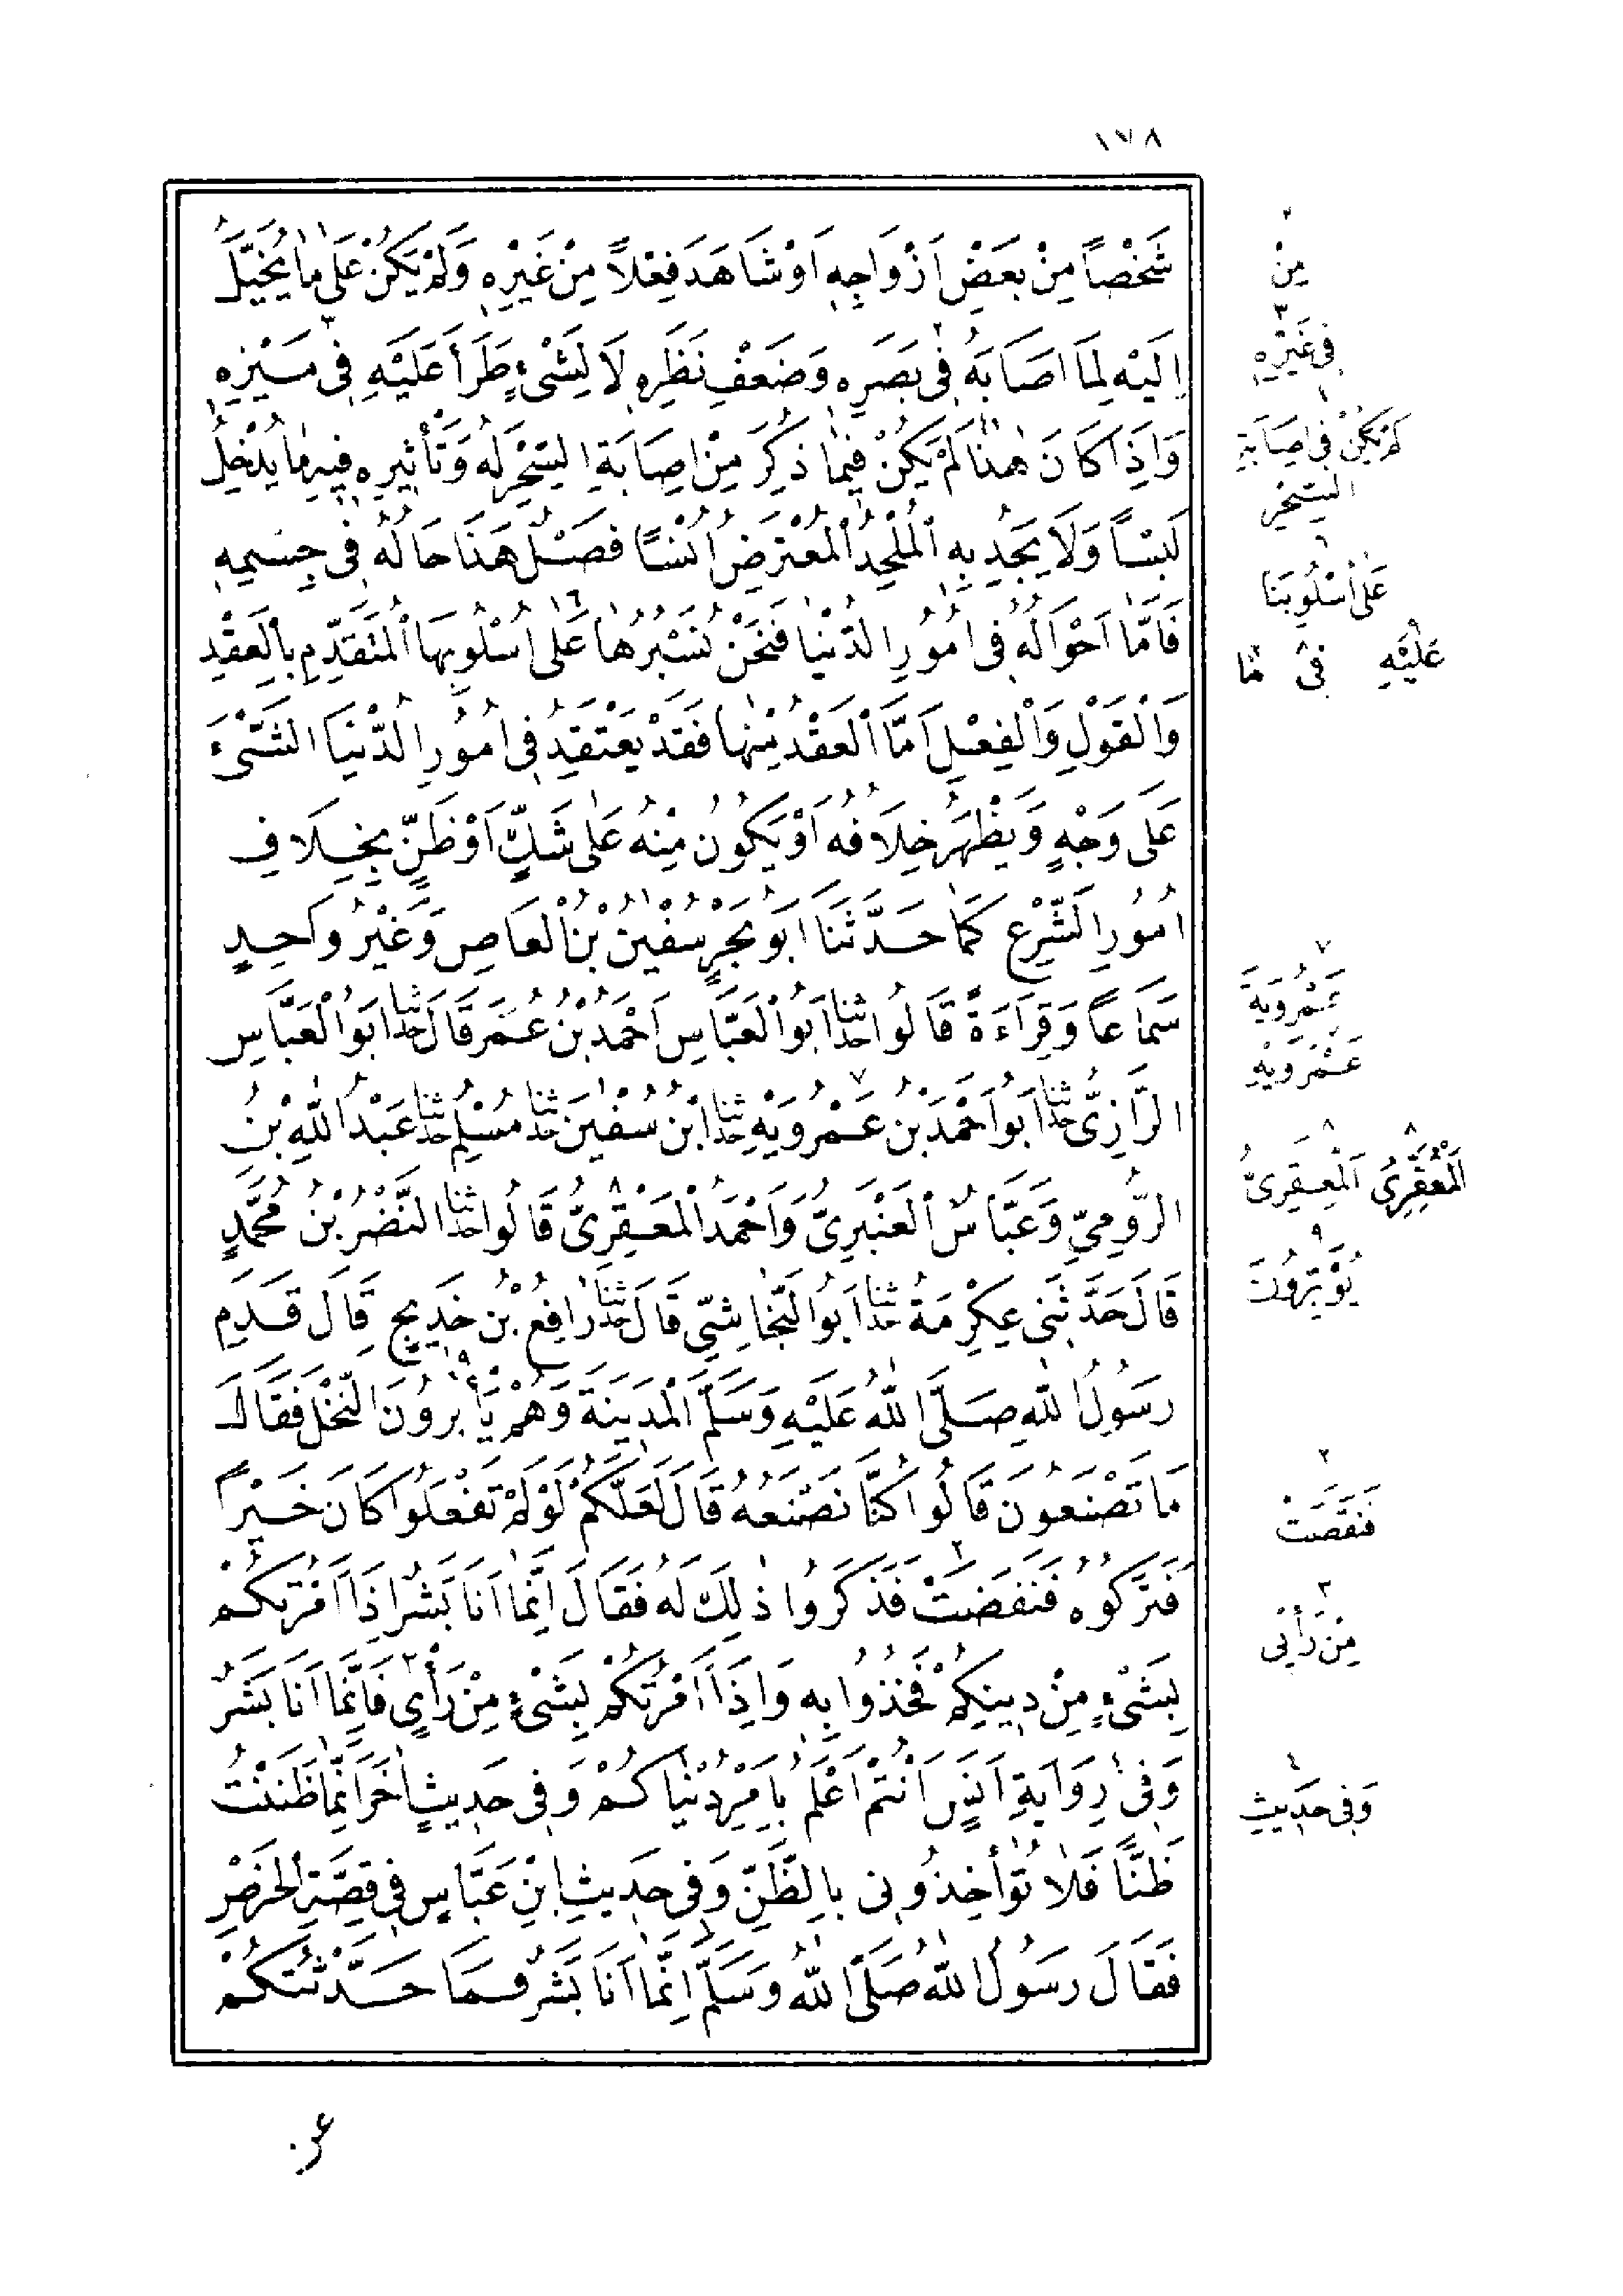 ١٧٨
شَخْصاً مِنْ بَعْضِ اَزْوَاجِهِ اَوْ شَاهَدَ فِعْلاً مِنْ غَيْرِهِ وَلَمْ يَكُنْ عَلَى مَا يُخَيَّلُ
اِلَيْهِ لِمَا اَصَابَهُ فِى بَصَرِهِ وَضَعْفِ نَظَرِهِ لَا لِشَىْءٍ طَرَأَ عَلَيْهِ فِى مَيْزِهِ
وَاِذَا كَانَ هٰذَا لَمْ يَكُنْ فِيمَا ذُكِرَ مِنْ اِصَابَةِ السِّحْرِ لَهُ وَتَأْثِيرِهِ فِيهِ مَا يُدْخِلُ
لَبْسًا وَلَا يَجِدُ بِهِ الْمُلْحِدُ الْمُعْتَرِضُ اُنْسًا فَصْلٌ هَذَا حَالُهُ فِى جِسْمِهِ
فَاَمَّا اَحْوَالُهُ فِى اُمُورِ الدُّنْيَا فَنَحْنُ نَسْبُرُهَا عَلَى اُسْلُوبِهَا الْمُتَقَدِّمِ بِالْعَقْدِ
وَالْقَوْلِ وَالْفِعْلِ اَمَّا الْعَقْدُ مِنْهَا فَقَدْ يَعْتَقِدُ فِى اُمُورِ الدُّنْيَا الشَّىْءَ
عَلَى وَجْهٍ وَيَظْهَرُ خِلَافُهُ اَوْ يَكُونُ مِنْهُ عَلَى شَكٍّ اَوْ ظَنٍّ بِخِلَافِ
اُمُورِ الشَّرْعِ كَمَا حَدَّثَنَا اَبُو بَحْرٍ سُفْيٰنُ بْنُ الْعَاصِ وَغَيْرُ وَاحِدٍ
سَمَاعاً وَقِرَاءَةً قَالُوا حدثنا اَبُو الْعَبَّاسِ اَحْمَدُ بْنُ عُمَرَ قَالَ حدثنا اَبُو الْعَبَّاسِ
الرَّازِىُّ حدثنا اَبُو اَحْمَدَ بْنُ عَمْرُوَيْهِ حدثنا ابْنُ سُفْيٰنَ حدثنا مُسْلِمٌ حدثنا عَبْدُ اللّٰهِ بْنُ
الرُّومِىِّ وَعَبَّاسٌ الْعَنْبَرِىُّ وَاَحْمَدُ الْمَعْقِرِىُّ قَالُوا حدثنا النَّضْرُ بْنُ مُحَمَّدٍ
قَالَ حَدَّثَنِى عِكْرِمَةُ حدثنا اَبُو النَّجَاشِىِّ قَالَ حدثنا رَافِعُ بْنُ خَدِيجٍ قَالَ قَدِمَ
رَسُولُ اللّٰهِ صَلَّى اللّٰهُ عَلَيْهِ وَسَلَّمَ الْمَدِينَةَ وَهُمْ يَأْبِرُونَ النَّخْلَ فَقَالَ
مَا تَصْنَعُونَ قَالُوا كُنَّا نَصْنَعُهُ قَالَ لَعَلَّكُمْ لَوْ لَمْ تَفْعَلُوا كَانَ خَيْراً
فَتَرَكُوهُ فَنَفَضَتْ فَذَكَرُوا ذٰلِكَ لَهُ فَقَالَ اِنَّمَا اَنَا بَشَرٌ اِذَا اَمَرْتُكُمْ
بِشَىْءٍ مِنْ دِينِكُمْ فَخُذُوا بِهِ وَاِذَا اَمَرْتُكُمْ بِشَىْءٍ مِنْ رَأْىٍ فَاِنَّمَا اَنَا بَشَرٌ
وَفِى رِوَايَةِ اَنَسٍ اَنْتُمْ اَعْلَمُ بِاَمْرِ دُنْيَاكُمْ وَفِى حَدِيثٍ اٰخَرَ اِنَّمَا ظَنَنْتُ
ظَنًّا فَلَا تُؤَاخِذُونِى بِالظَّنِّ وَفِى حَدِيثِ ابْنِ عَبَّاسٍ فِى قِصَّةِ الْخَرْصِ
فَقَالَ رَسُولُ اللّٰهِ صَلَّى اللّٰهُ وَسَلَّمَ اِنَّمَا اَنَا بَشَرٌ فَمَا حَدَّثْتُكُمْ
٢
مِنْ
٣
فِى غَيْرِهِ
١
لَمْ يَكُنْ فِى اِصَابَةِ
السِّحْرِ
٦
عَلَى اُسْلُوبِنَا
عَلَيْهِ فِى مَا
٧
عَمْرُوَيَةَ
عَمْرَوَيْهِ
٨ ٨
الْمَعْقِرِىُّ الْمِعْقِرِىُّ
٩
يُؤَبِّرُونَ
٢
فَنَقَصَتْ
٣
مِنْ رَأْيِى
٤
وَفِى حَدِيثِ